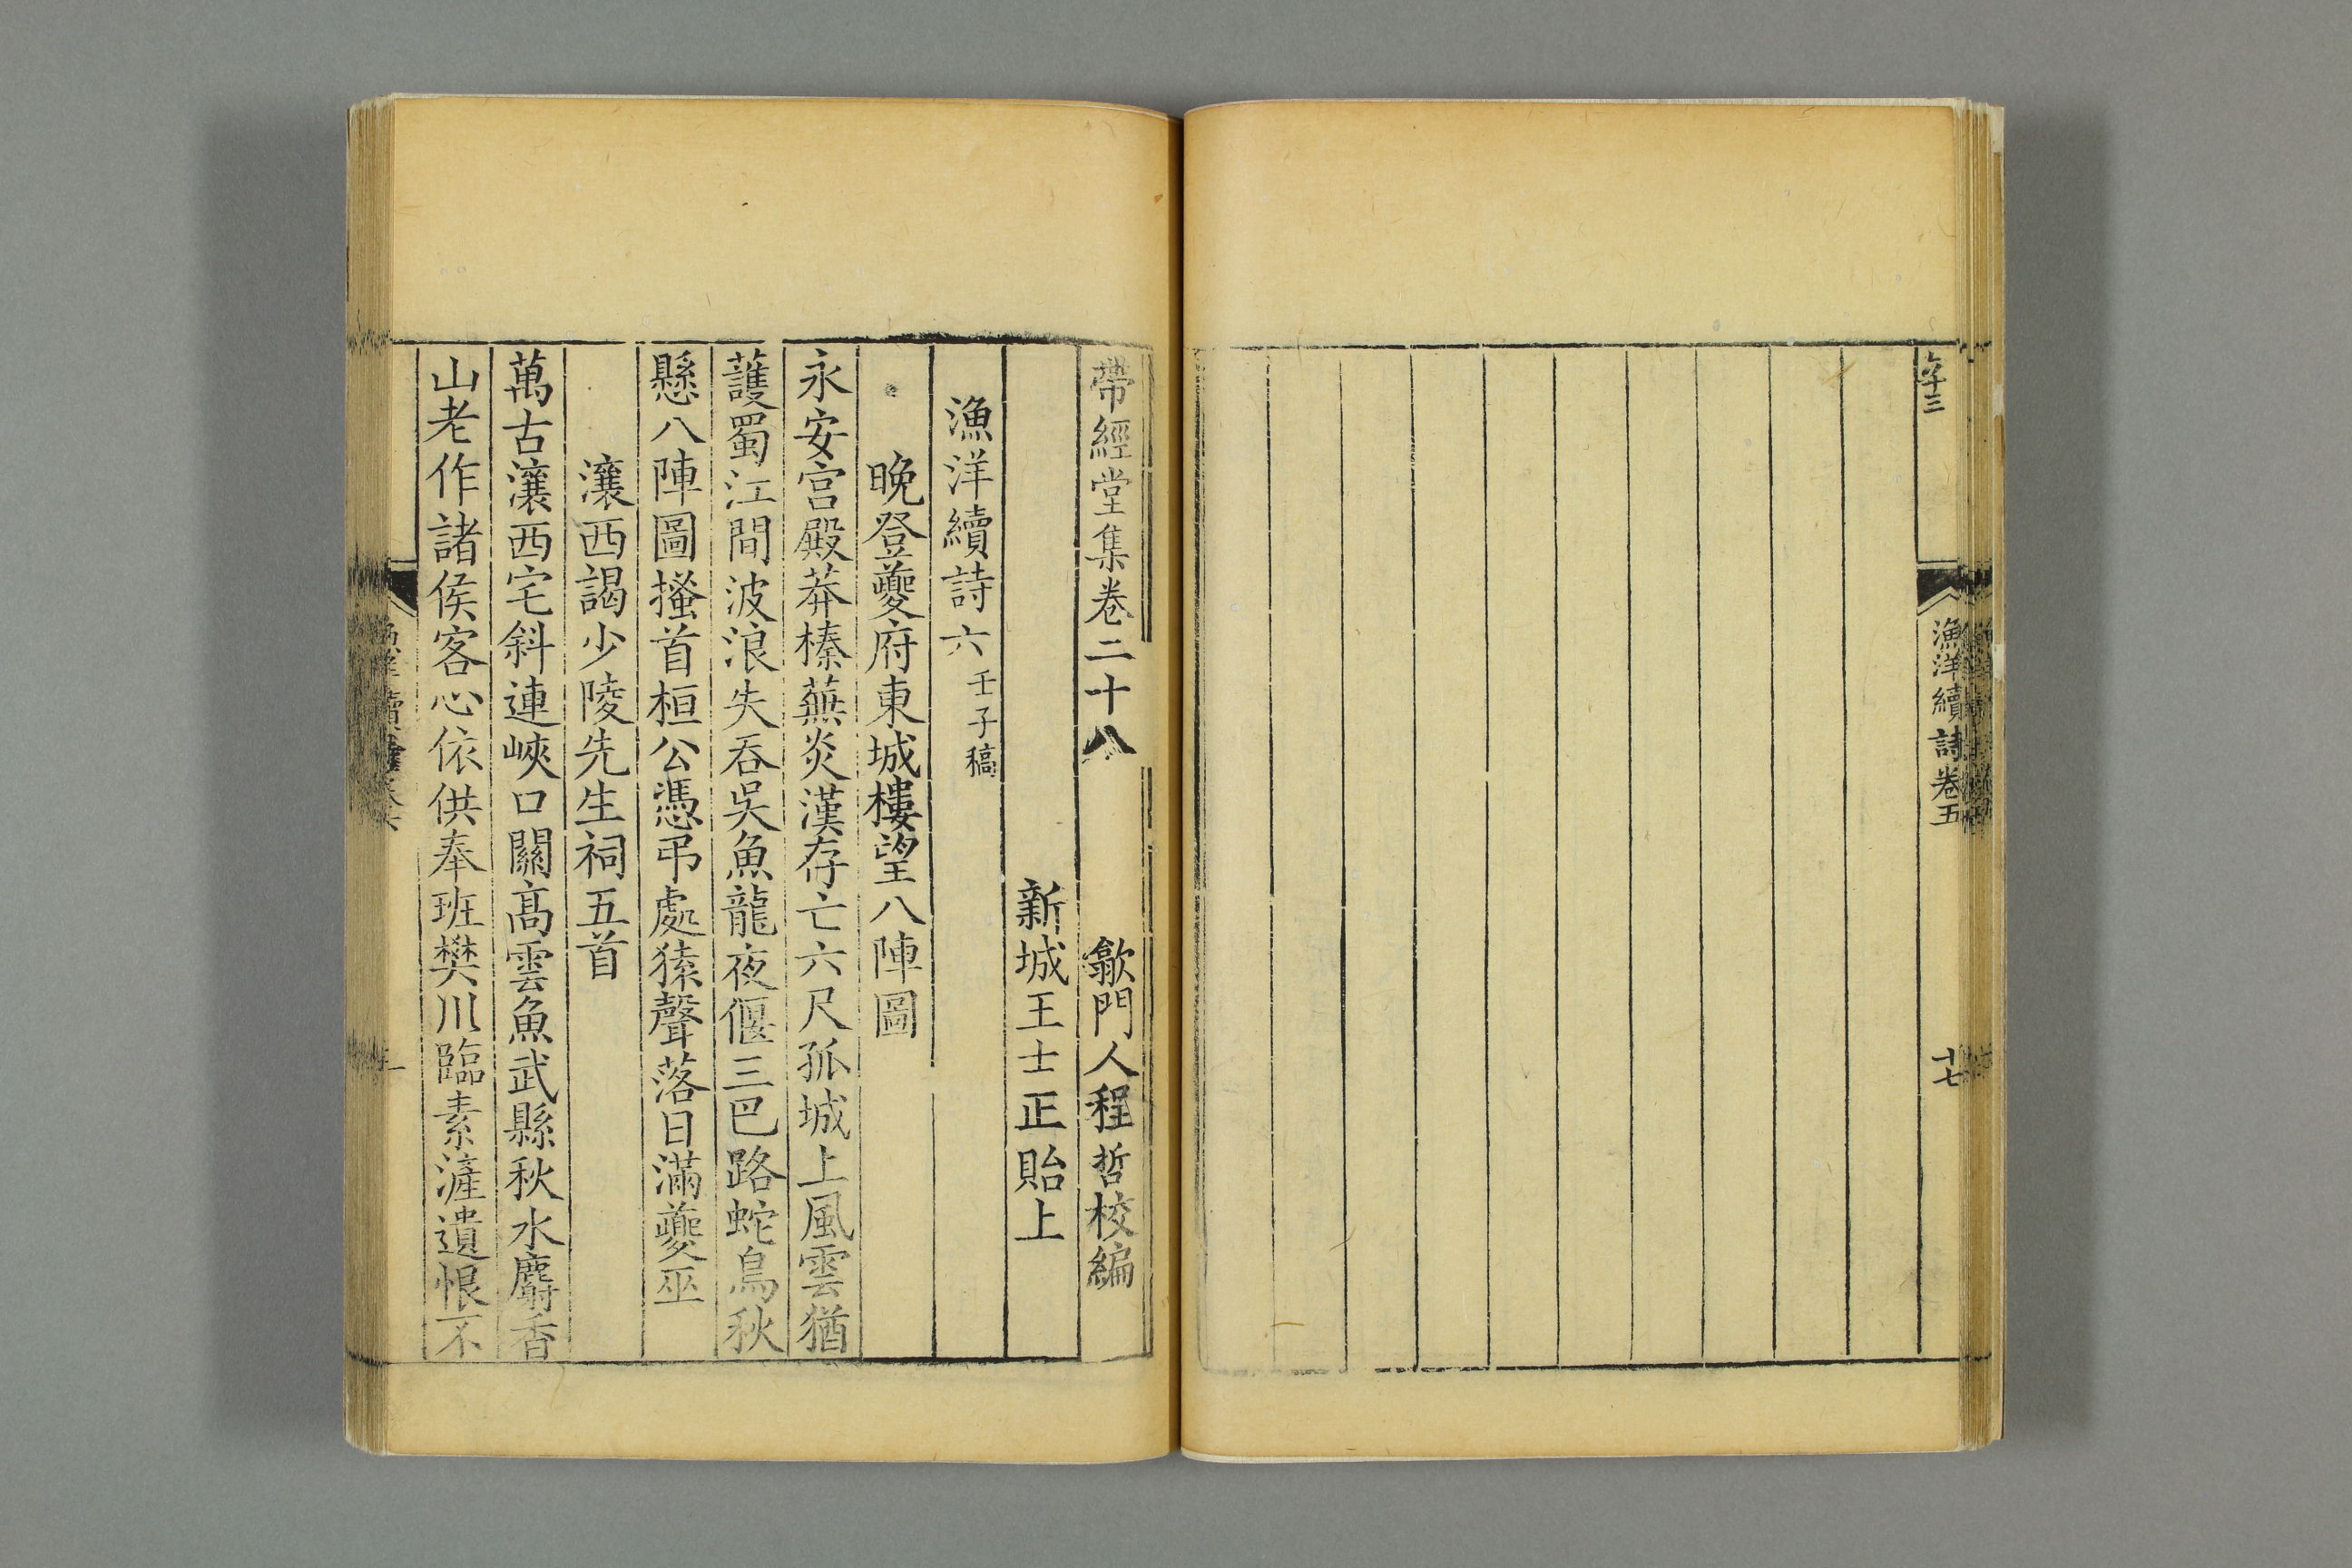 漁洋續詩卷五
十七
帶經堂集卷二十八
歙門人程哲校編
新城王士正貽上
漁洋續詩六 壬子稿
晚登夔府東城樓望八陣圖
永安宮殿莽榛蕪炎漢存亡六尺孤城上風雲猶
護蜀江間波浪失吞吳魚龍夜偃三巴路蛇鳥秋
懸八陣圖搔首桓公憑弔處猿聲落日滿夔巫
瀼西謁少陵先生祠五首
萬古瀼西宅斜連峽口關高雲魚武縣秋水麝香
山老作諸侯客心依供奉班樊川臨素滻遺恨不